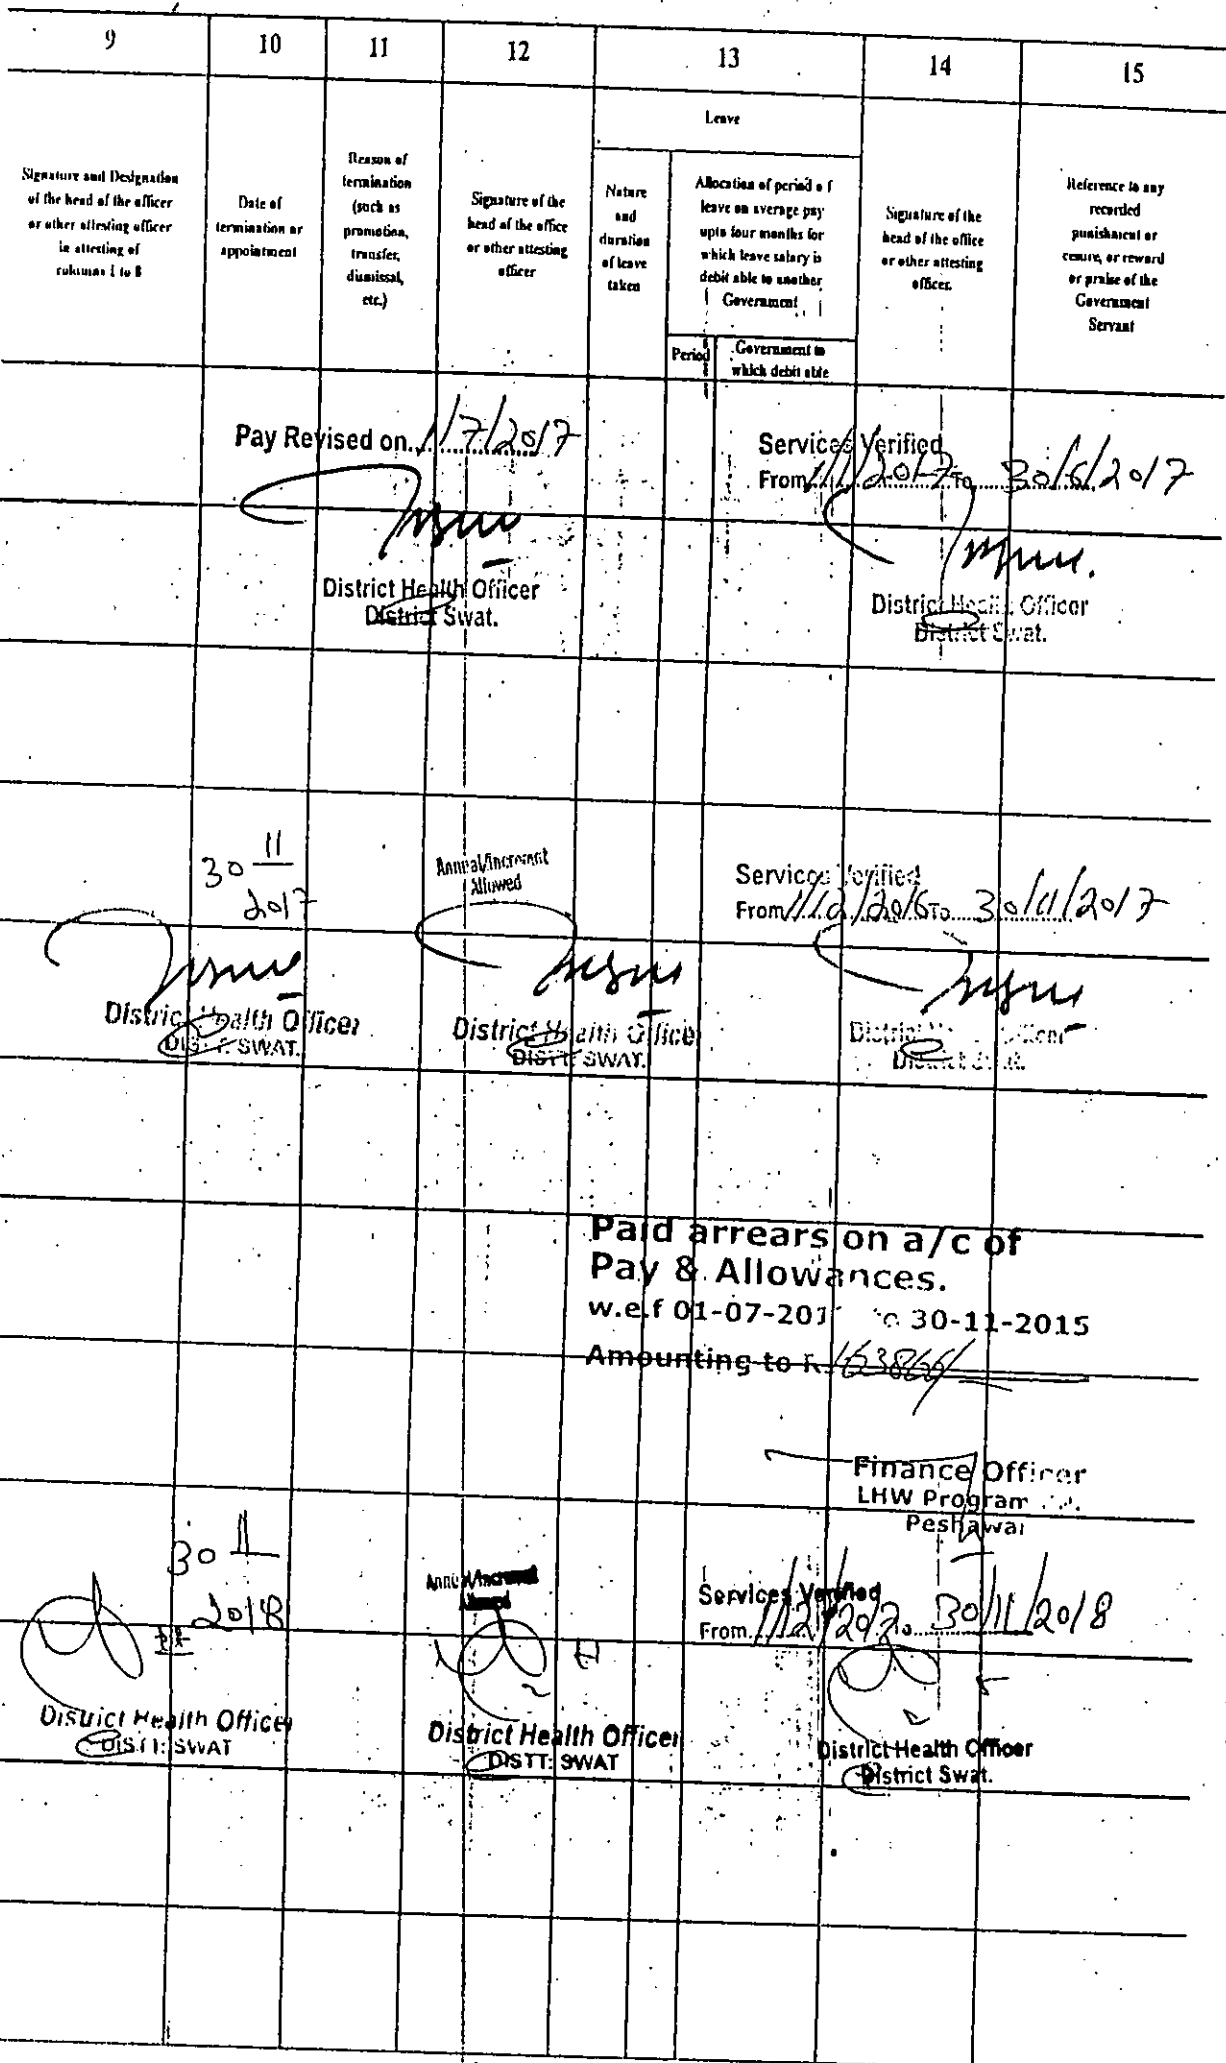 9
10
11
12
13
14
15
Signature and Designation
of the head of the officer
or other attesting officer
in attesting of
columns 1 to 8
Date of
termination or
appointment
Reason of
termination
(such as
promotion,
transfer,
dismissal,
etc.)
Signature of the
head of the office
or other attesting
officer
Leave
Nature
and
duration
of leave
taken
Allocation of period of
leave on average pay
upto four months for
which leave salary is
debit able to another
Government
Period
Government to
which debit able
Signature of the
head of the office
or other attesting
officer.
Reference to any
recorded
punishment or
censure, or reward
or praise of the
Government
Servant
Pay Revised on 1/7/2017
District Health Officer
District Swat.
Services Verified
From 1/1/2017 To 30/6/2017
District Health Officer
District Swat.
30 11
2017
District Health Officer
DISTT: SWAT.
Annual Increment
Allowed
District Health Officer
DISTT: SWAT.
Services Verified
From 1/12/2016 To 30/11/2017
District Officer
District
Paid arrears on a/c of
Pay & Allowances.
w.e.f 01-07-201 to 30-11-2015
Amounting to R.
Finance Officer
LHW Program
Peshawar
30 11
2018
District Health Officer
DISTT: SWAT
Annual Increment
Allowed
District Health Officer
DISTT: SWAT
Services Verified
From 1/12/ To 30/11/2018
District Health Officer
District Swat.